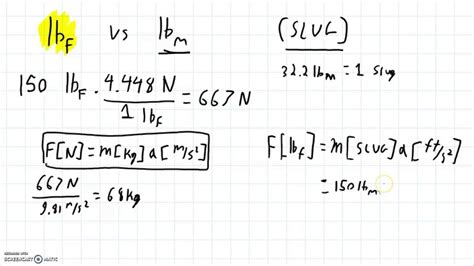 lb_F vs lb_m
(SLUG)
32.2 lb_m = 1 Slug
150 lb_F · 4.448 N / 1 lb_F = 667 N
F[N] = m[kg] a[m/s²]
667 N / 9.81 m/s² = 68 kg
F[lb_F] = m[SLUG] a[ft/s²]
= 150 lb_m
RECORDED WITH
SCREENCAST-O-MATIC